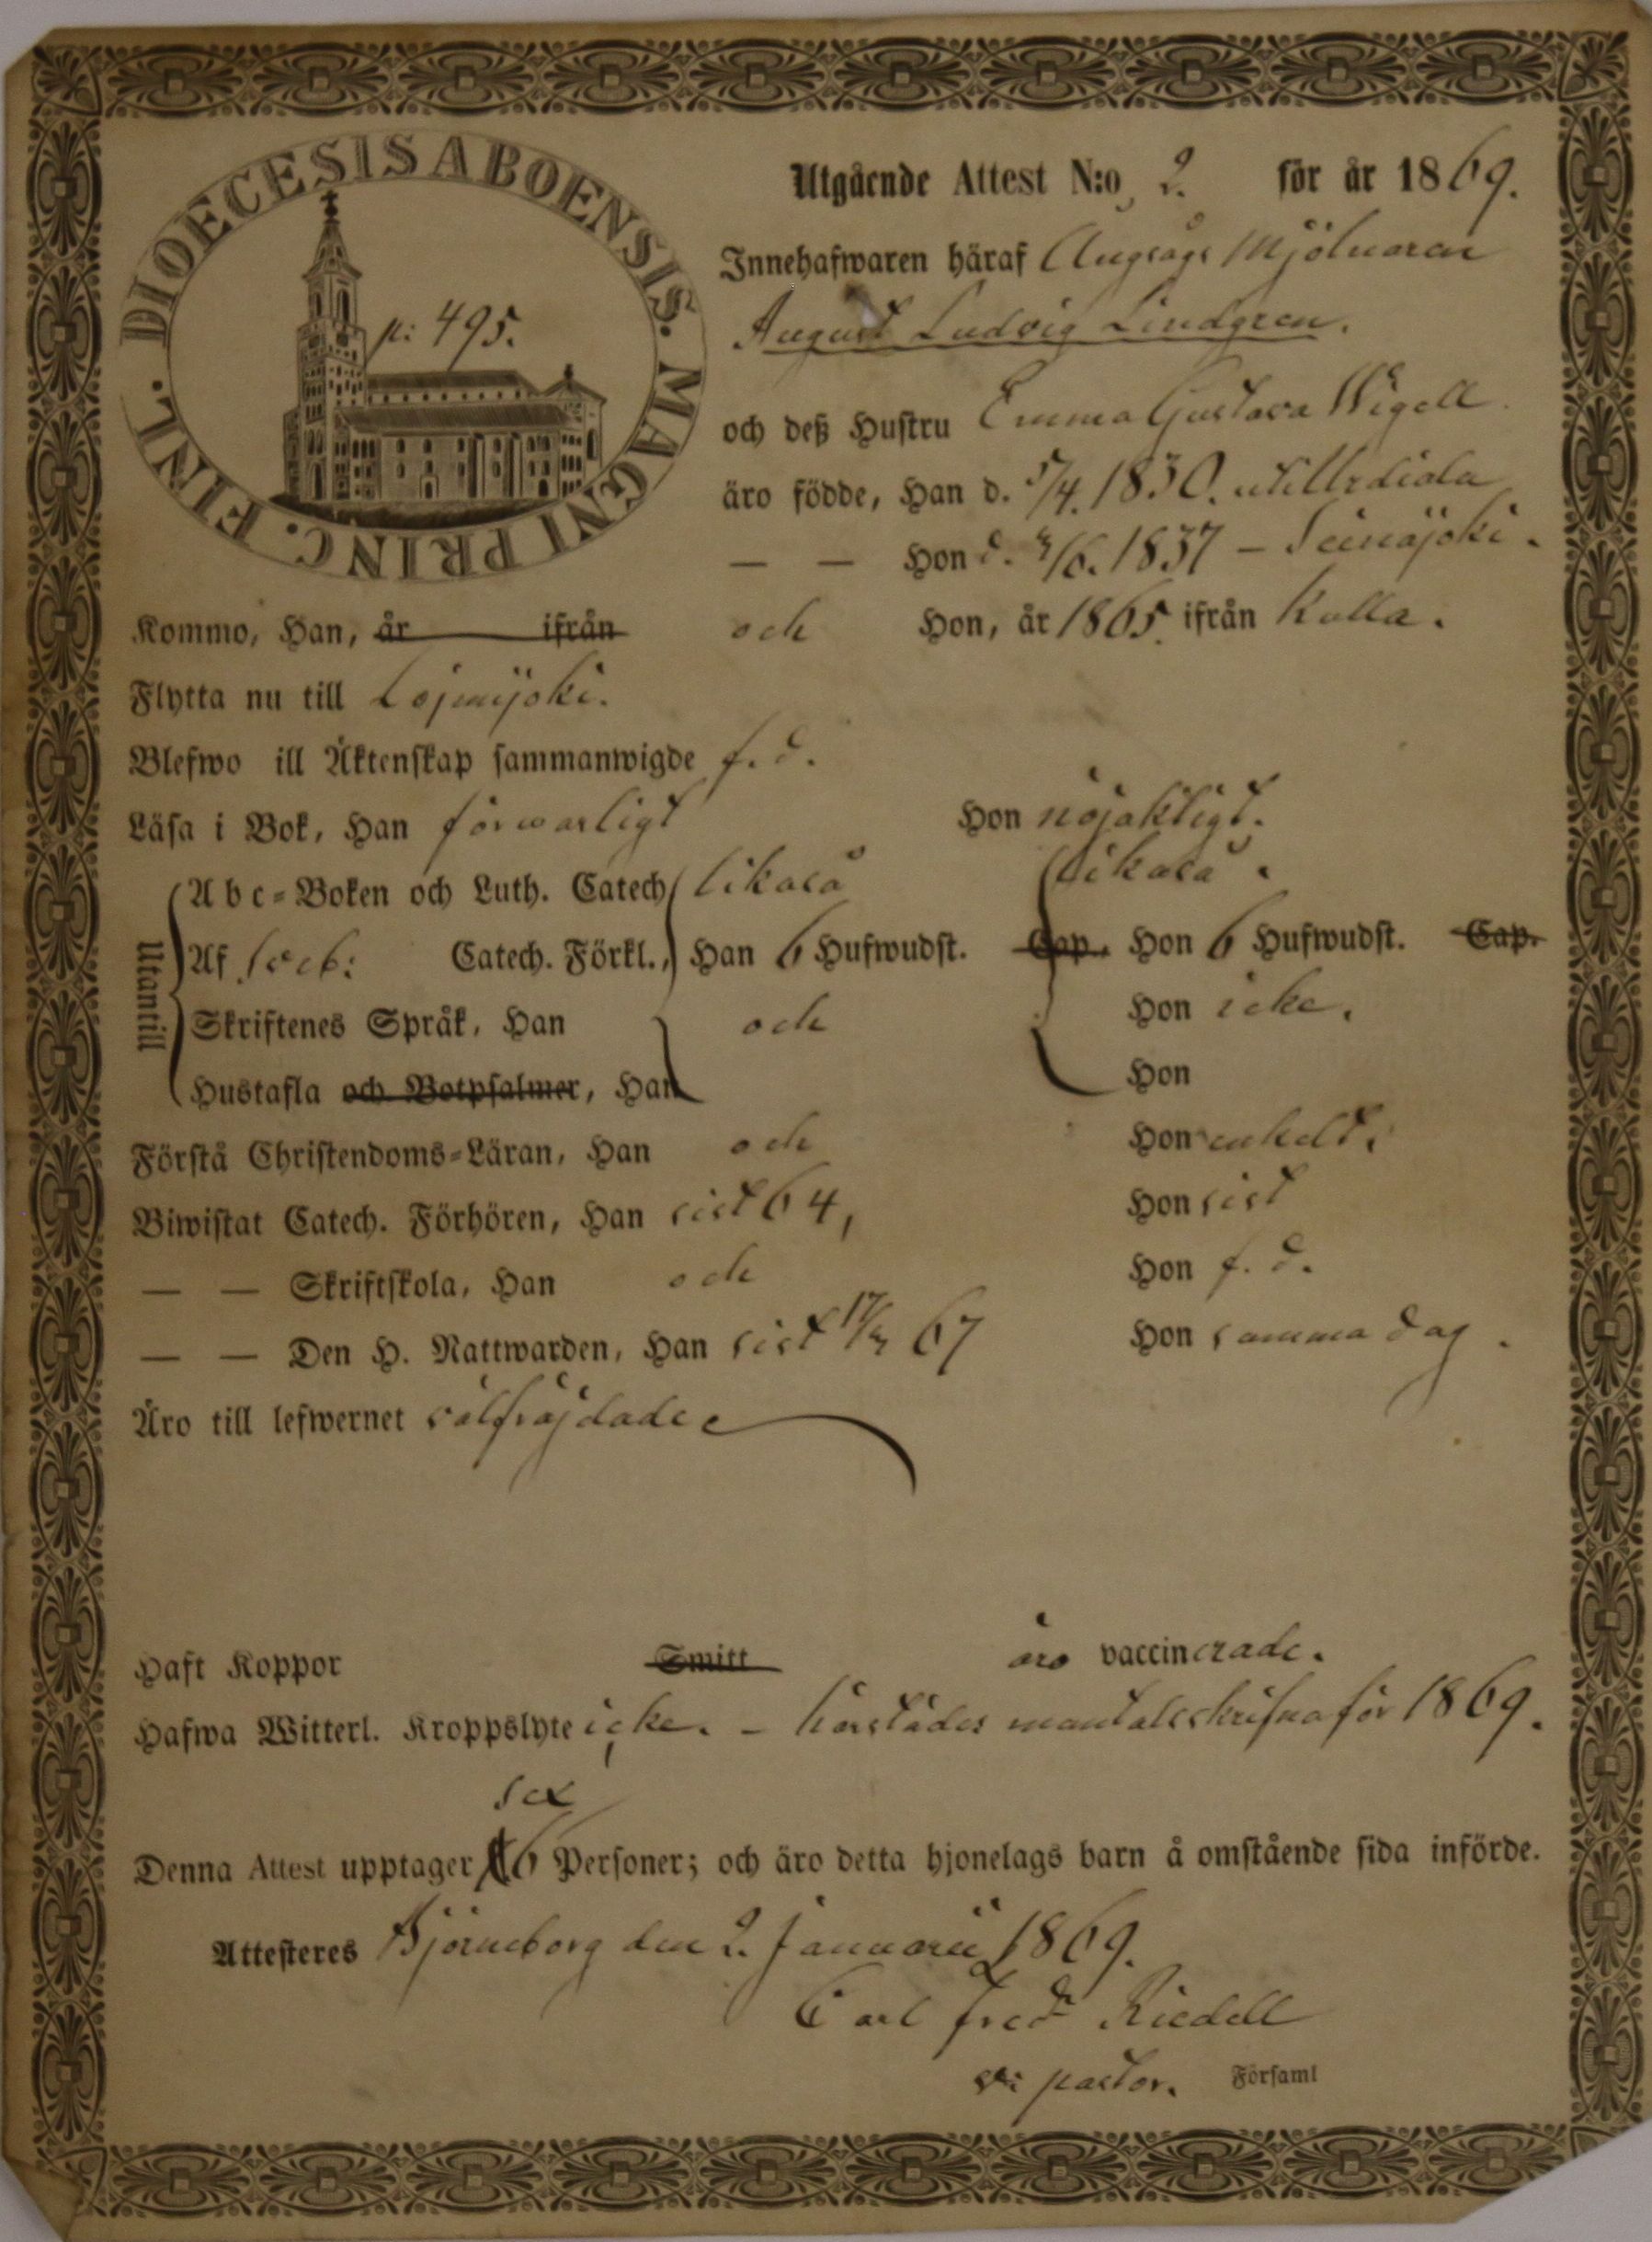 DIOECESIS ABOENSIS. MAGNI PRINC. FINL.
p: 495.
Utgående Attest N:o 2. för år 1869.
Innehafwaren häraf Ångsågs Mjölnaren
August Ludvig Lindgren.
och deß Hustru Emma Gustava Wigell
äro födde, Han d. 5/4. 1830.
— — Hon d. 4/6. 1837 – Seinäjoki.
Kommo, Han, år ifrån och Hon, år 1865. ifrån Kulla.
Flytta nu till Loimijoki.
Blefwo ill Äktenskap sammanwigde f. d.
Läsa i Bok, Han förswarligt Hon nöjaktigt.
Utantill
A b c-Boken och Luth. Catech likaså likaså.
Af Sveb: Catech. Förkl., Han 6 Hufwudst. Cap. Hon 6 Hufwudst. Cap.
Skriftenes Språk, Han och Hon icke.
Hustafla och Botpsalmer, Han Hon
Förstå Christendoms-Läran, Han och Hon enkelt.
Biwistat Catech. Förhören, Han sist 64, Hon sist
— — Skriftskola, Han och Hon f. d.
— — Den H. Nattwarden, Han sist 67 Hon samma dag.
Äro till lefwernet välfräjdade
Haft Koppor Smitt äro vaccinerade.
Hafwa Witterl. Kroppslyte icke. – härstädes mantalsskrifna för 1869.
sex
Denna Attest upptager 6 Personer; och äro detta hjonelags barn å omstående sida införde.
Attesteres Björneborg den 2. Januarii 1869.
Carl Fredr Riedell
v: pastor. Församl